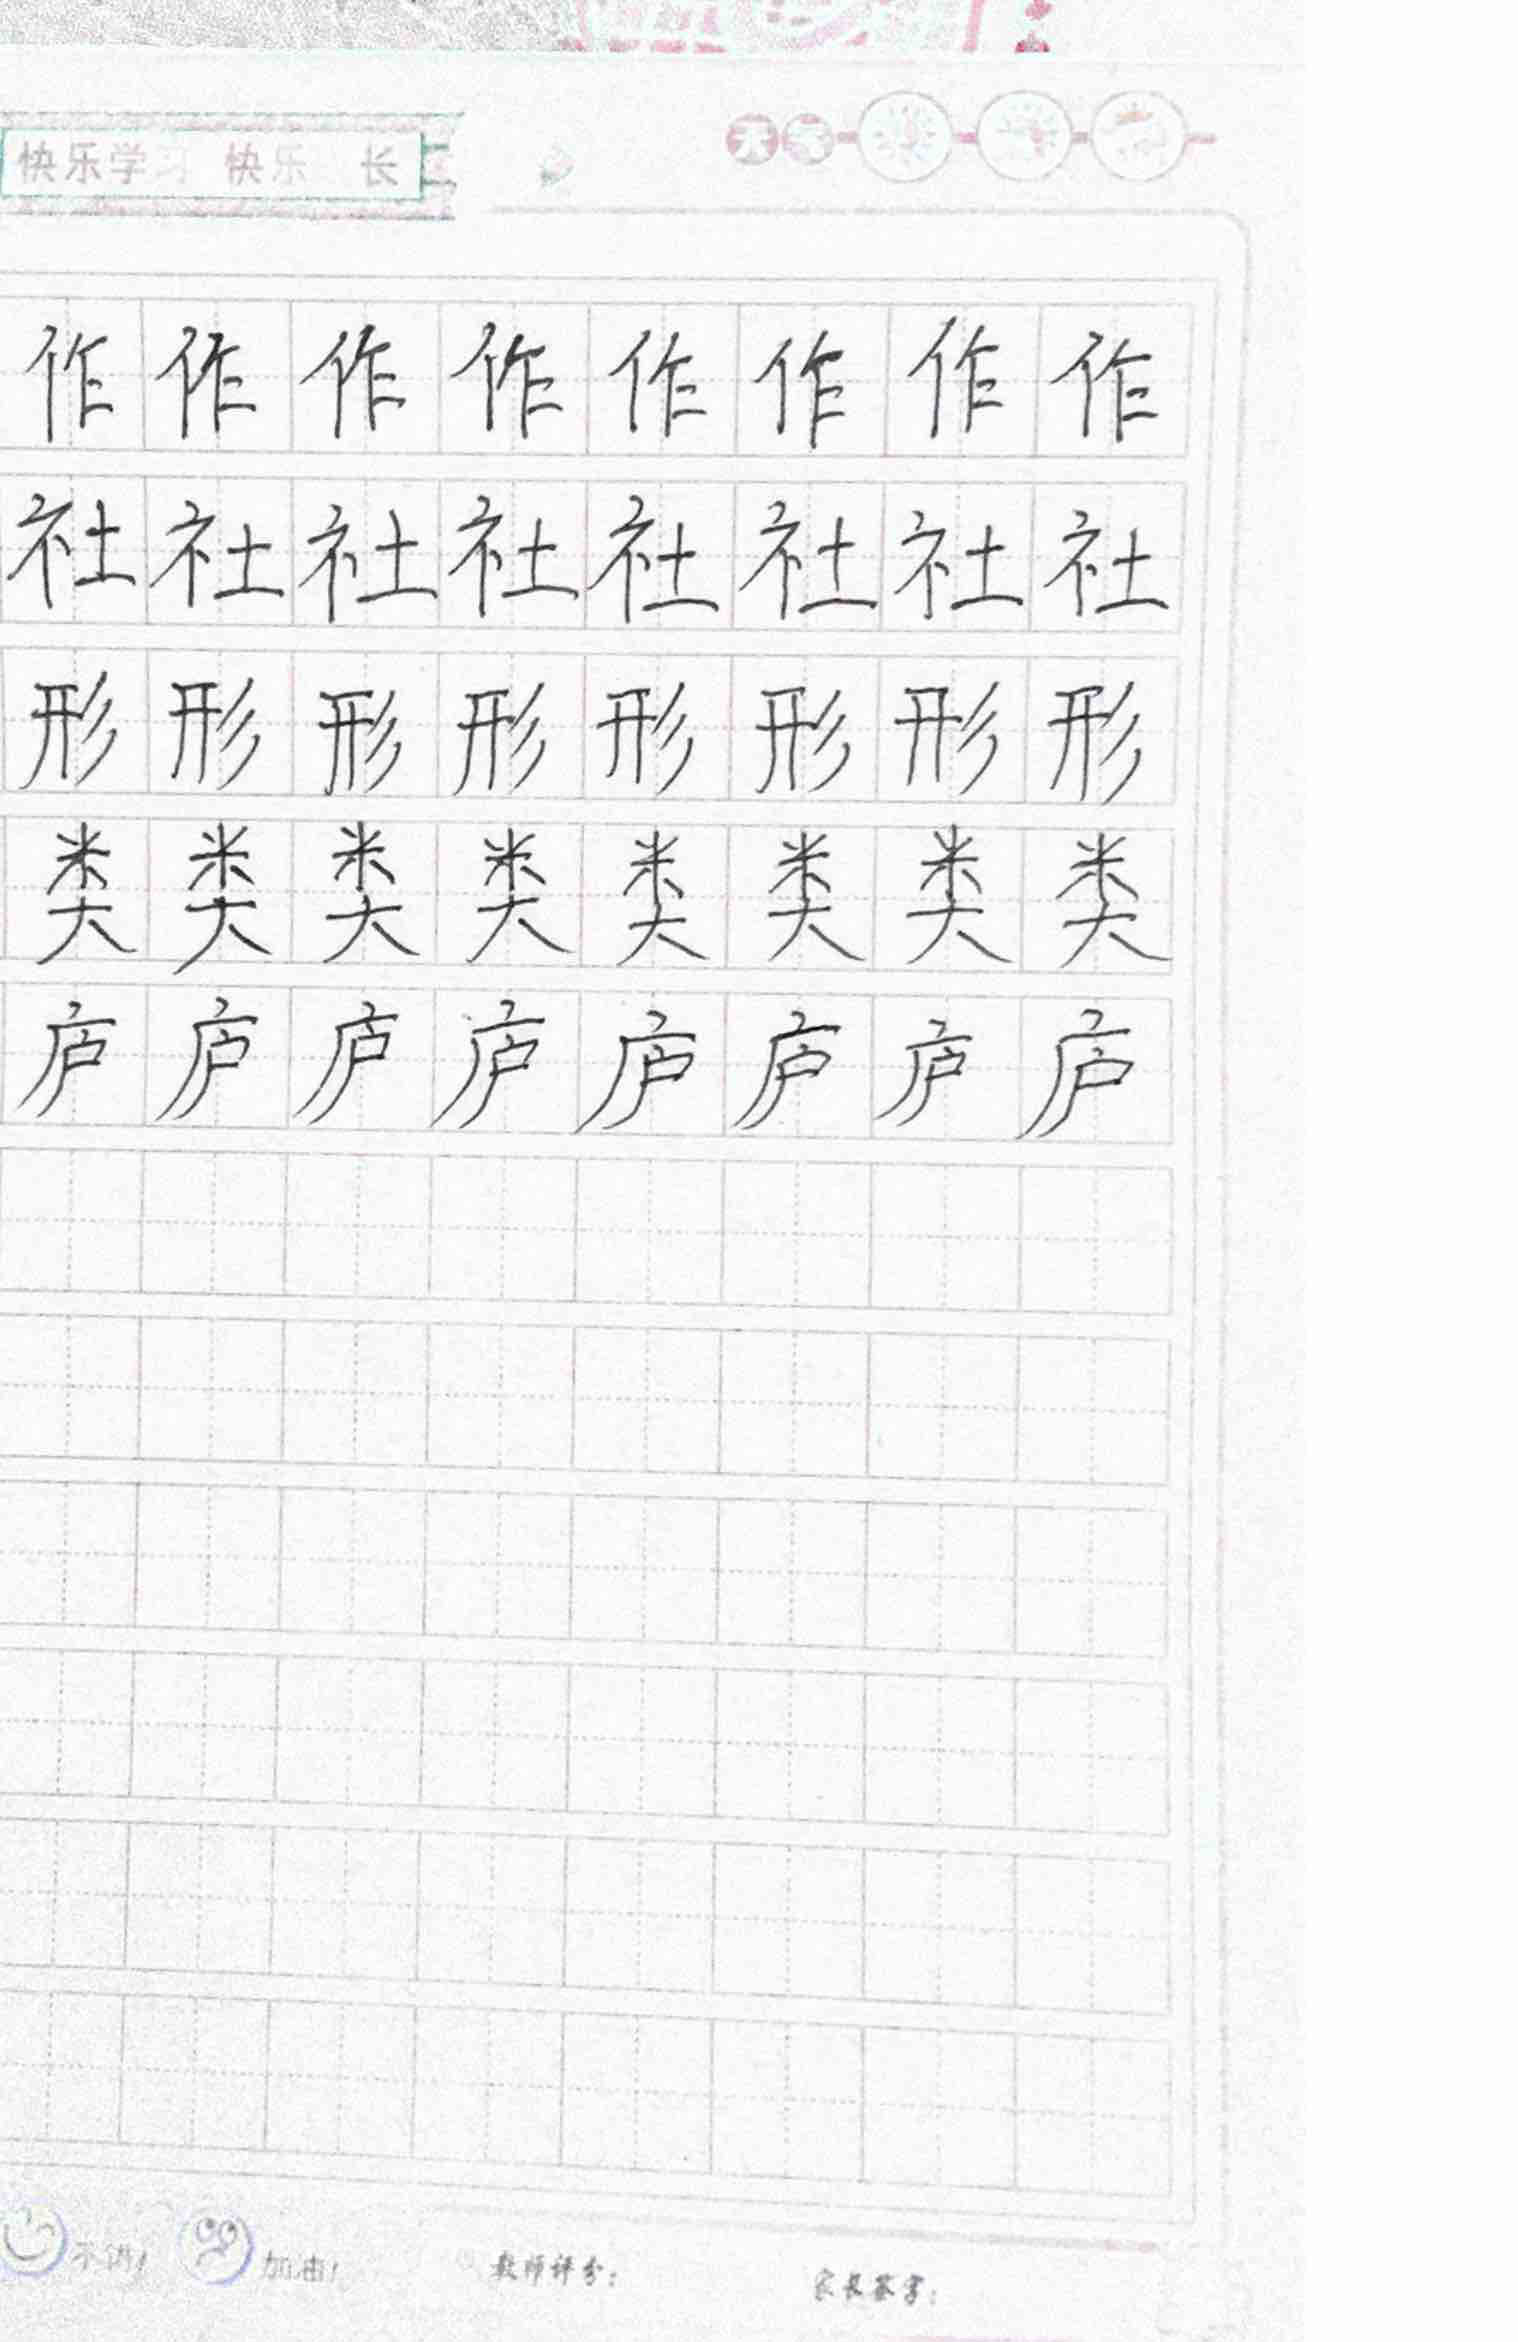 快乐学习 快乐 长
天气
作作作作作作作作
社社社社社社社社
形形形形形形形形
类类类类类类类类
庐庐庐庐庐庐庐庐
不错! 加油! 教师评分: 家长签字: